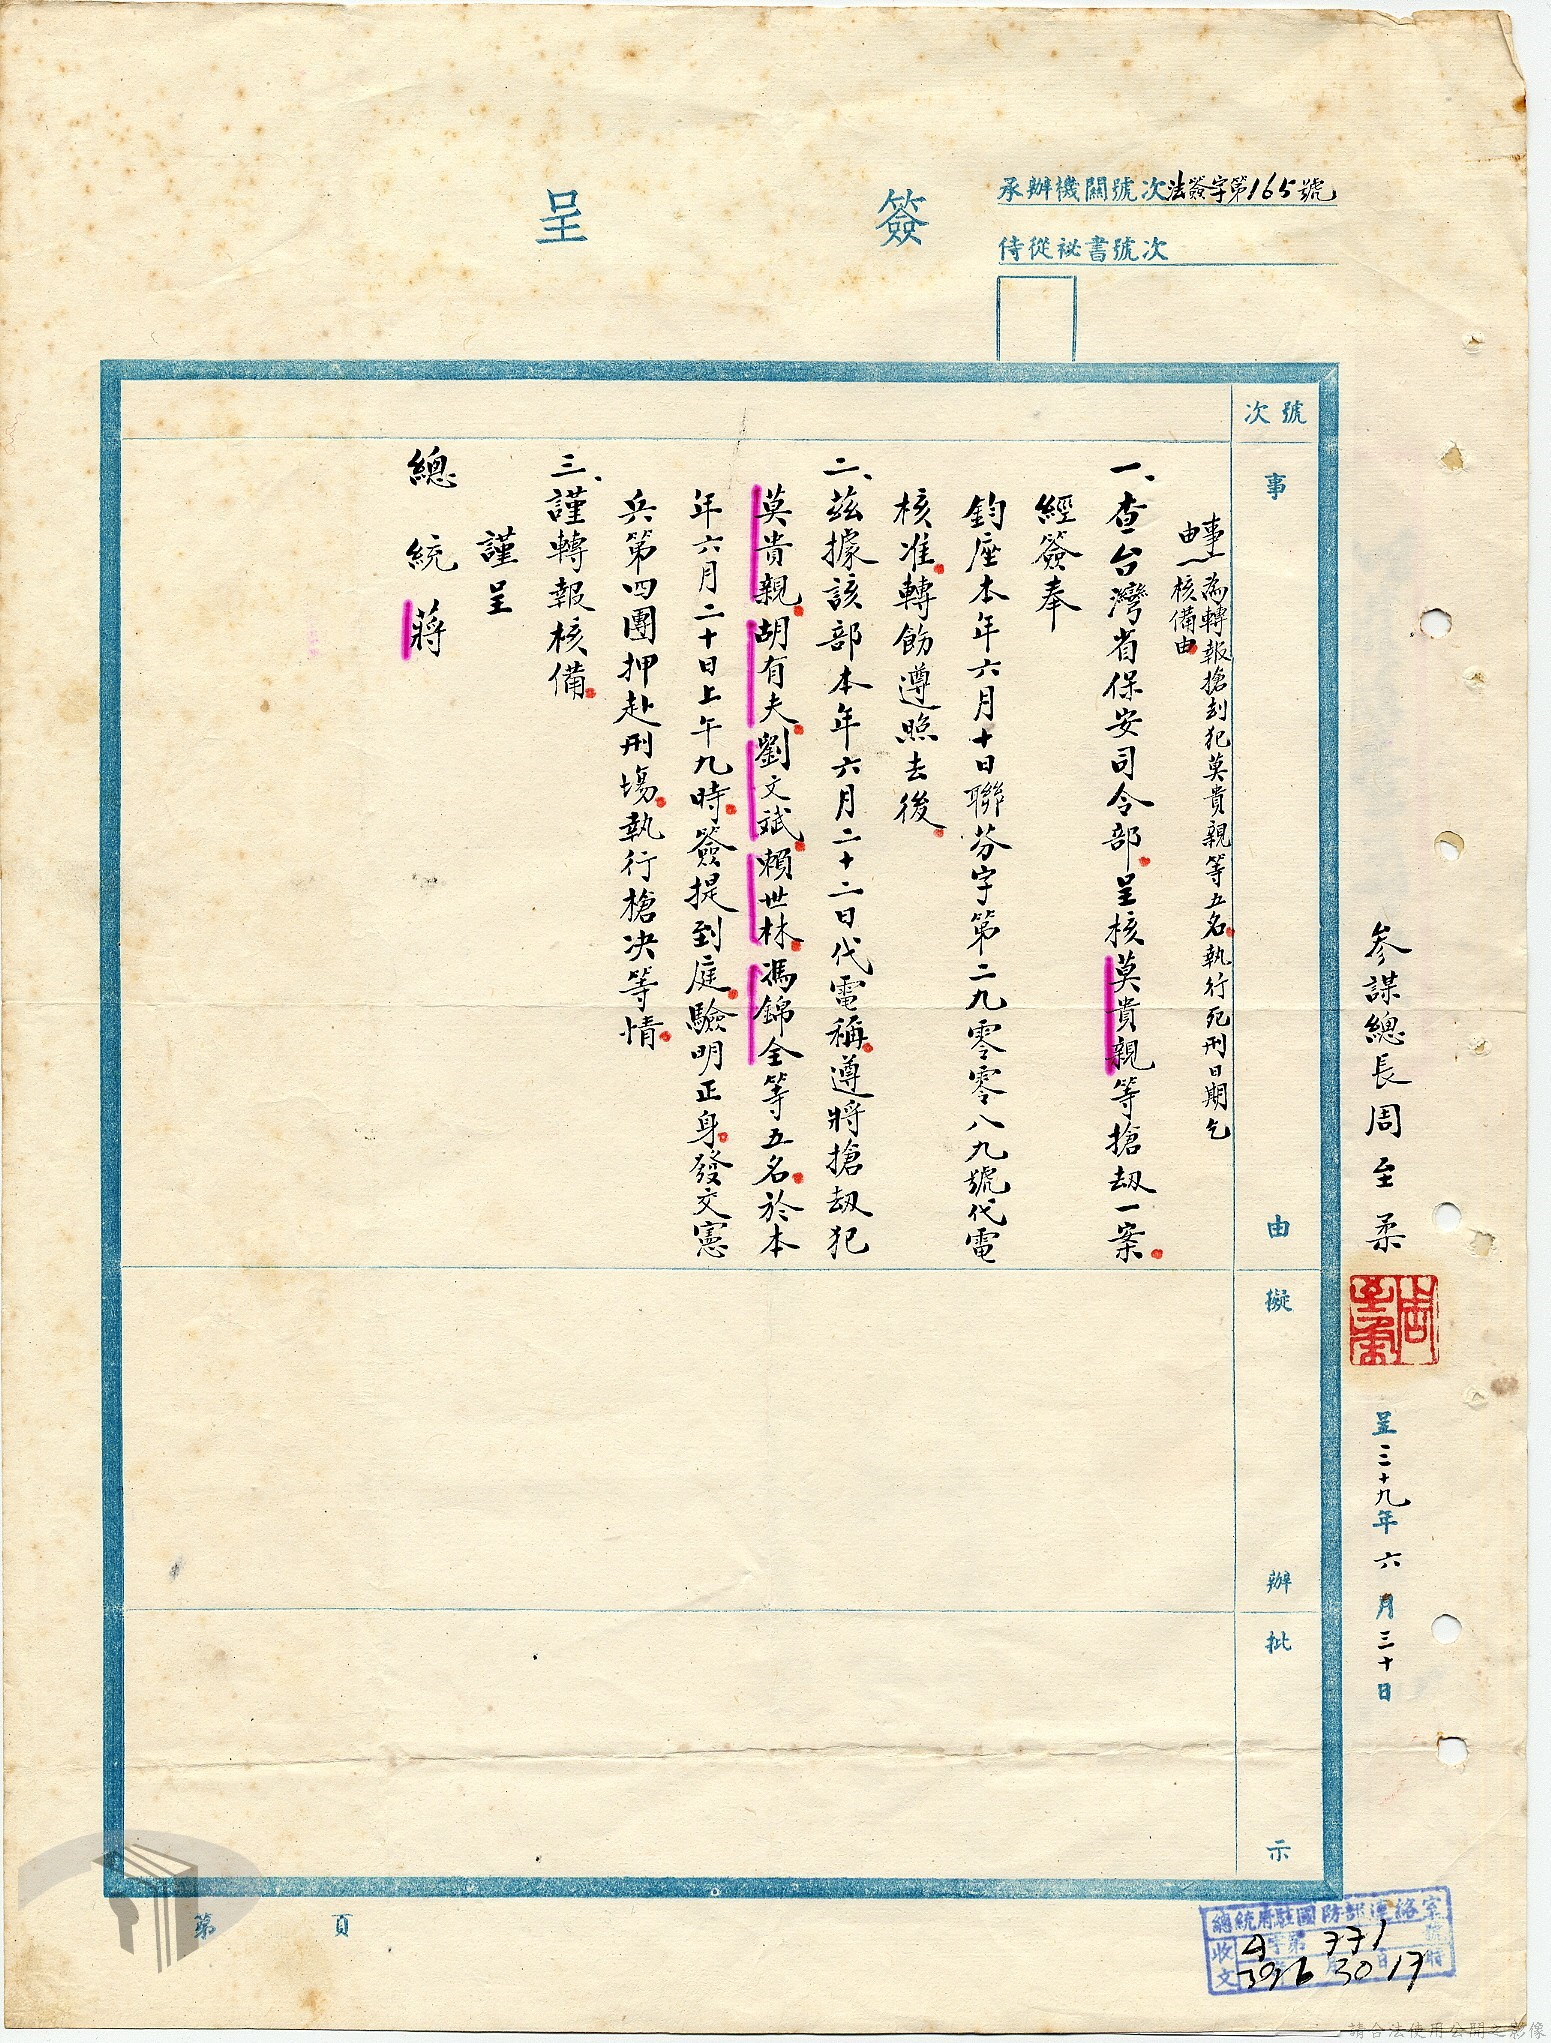 簽呈
承辦機關號次法簽字第165號
侍從祕書號次
號次
事由
擬辦
批示
參謀總長周至柔
周至柔
呈三十九年六月三十日
事由一為轉報搶刦犯莫貴親等五名執行死刑日期乞
核備由
一、查台灣省保安司令部呈核莫貴親等搶刼一案
經簽奉
鈞座本年六月十日聯芬字第二九零零八九號代電
核准轉飭遵照去後
二、茲據該部本年六月二十二日代電稱遵將搶刼犯
莫貴親胡有夫劉文斌賴世林馮錦全等五名於本
年六月二十日上午九時簽提到庭驗明正身發交憲
兵第四團押赴刑場執行槍決等情
三、謹轉報核備
謹呈
總統蔣
第頁
總統府駐國防部連絡室
收文
字第771號
39 6月30日17時
請合法使用公開之影像